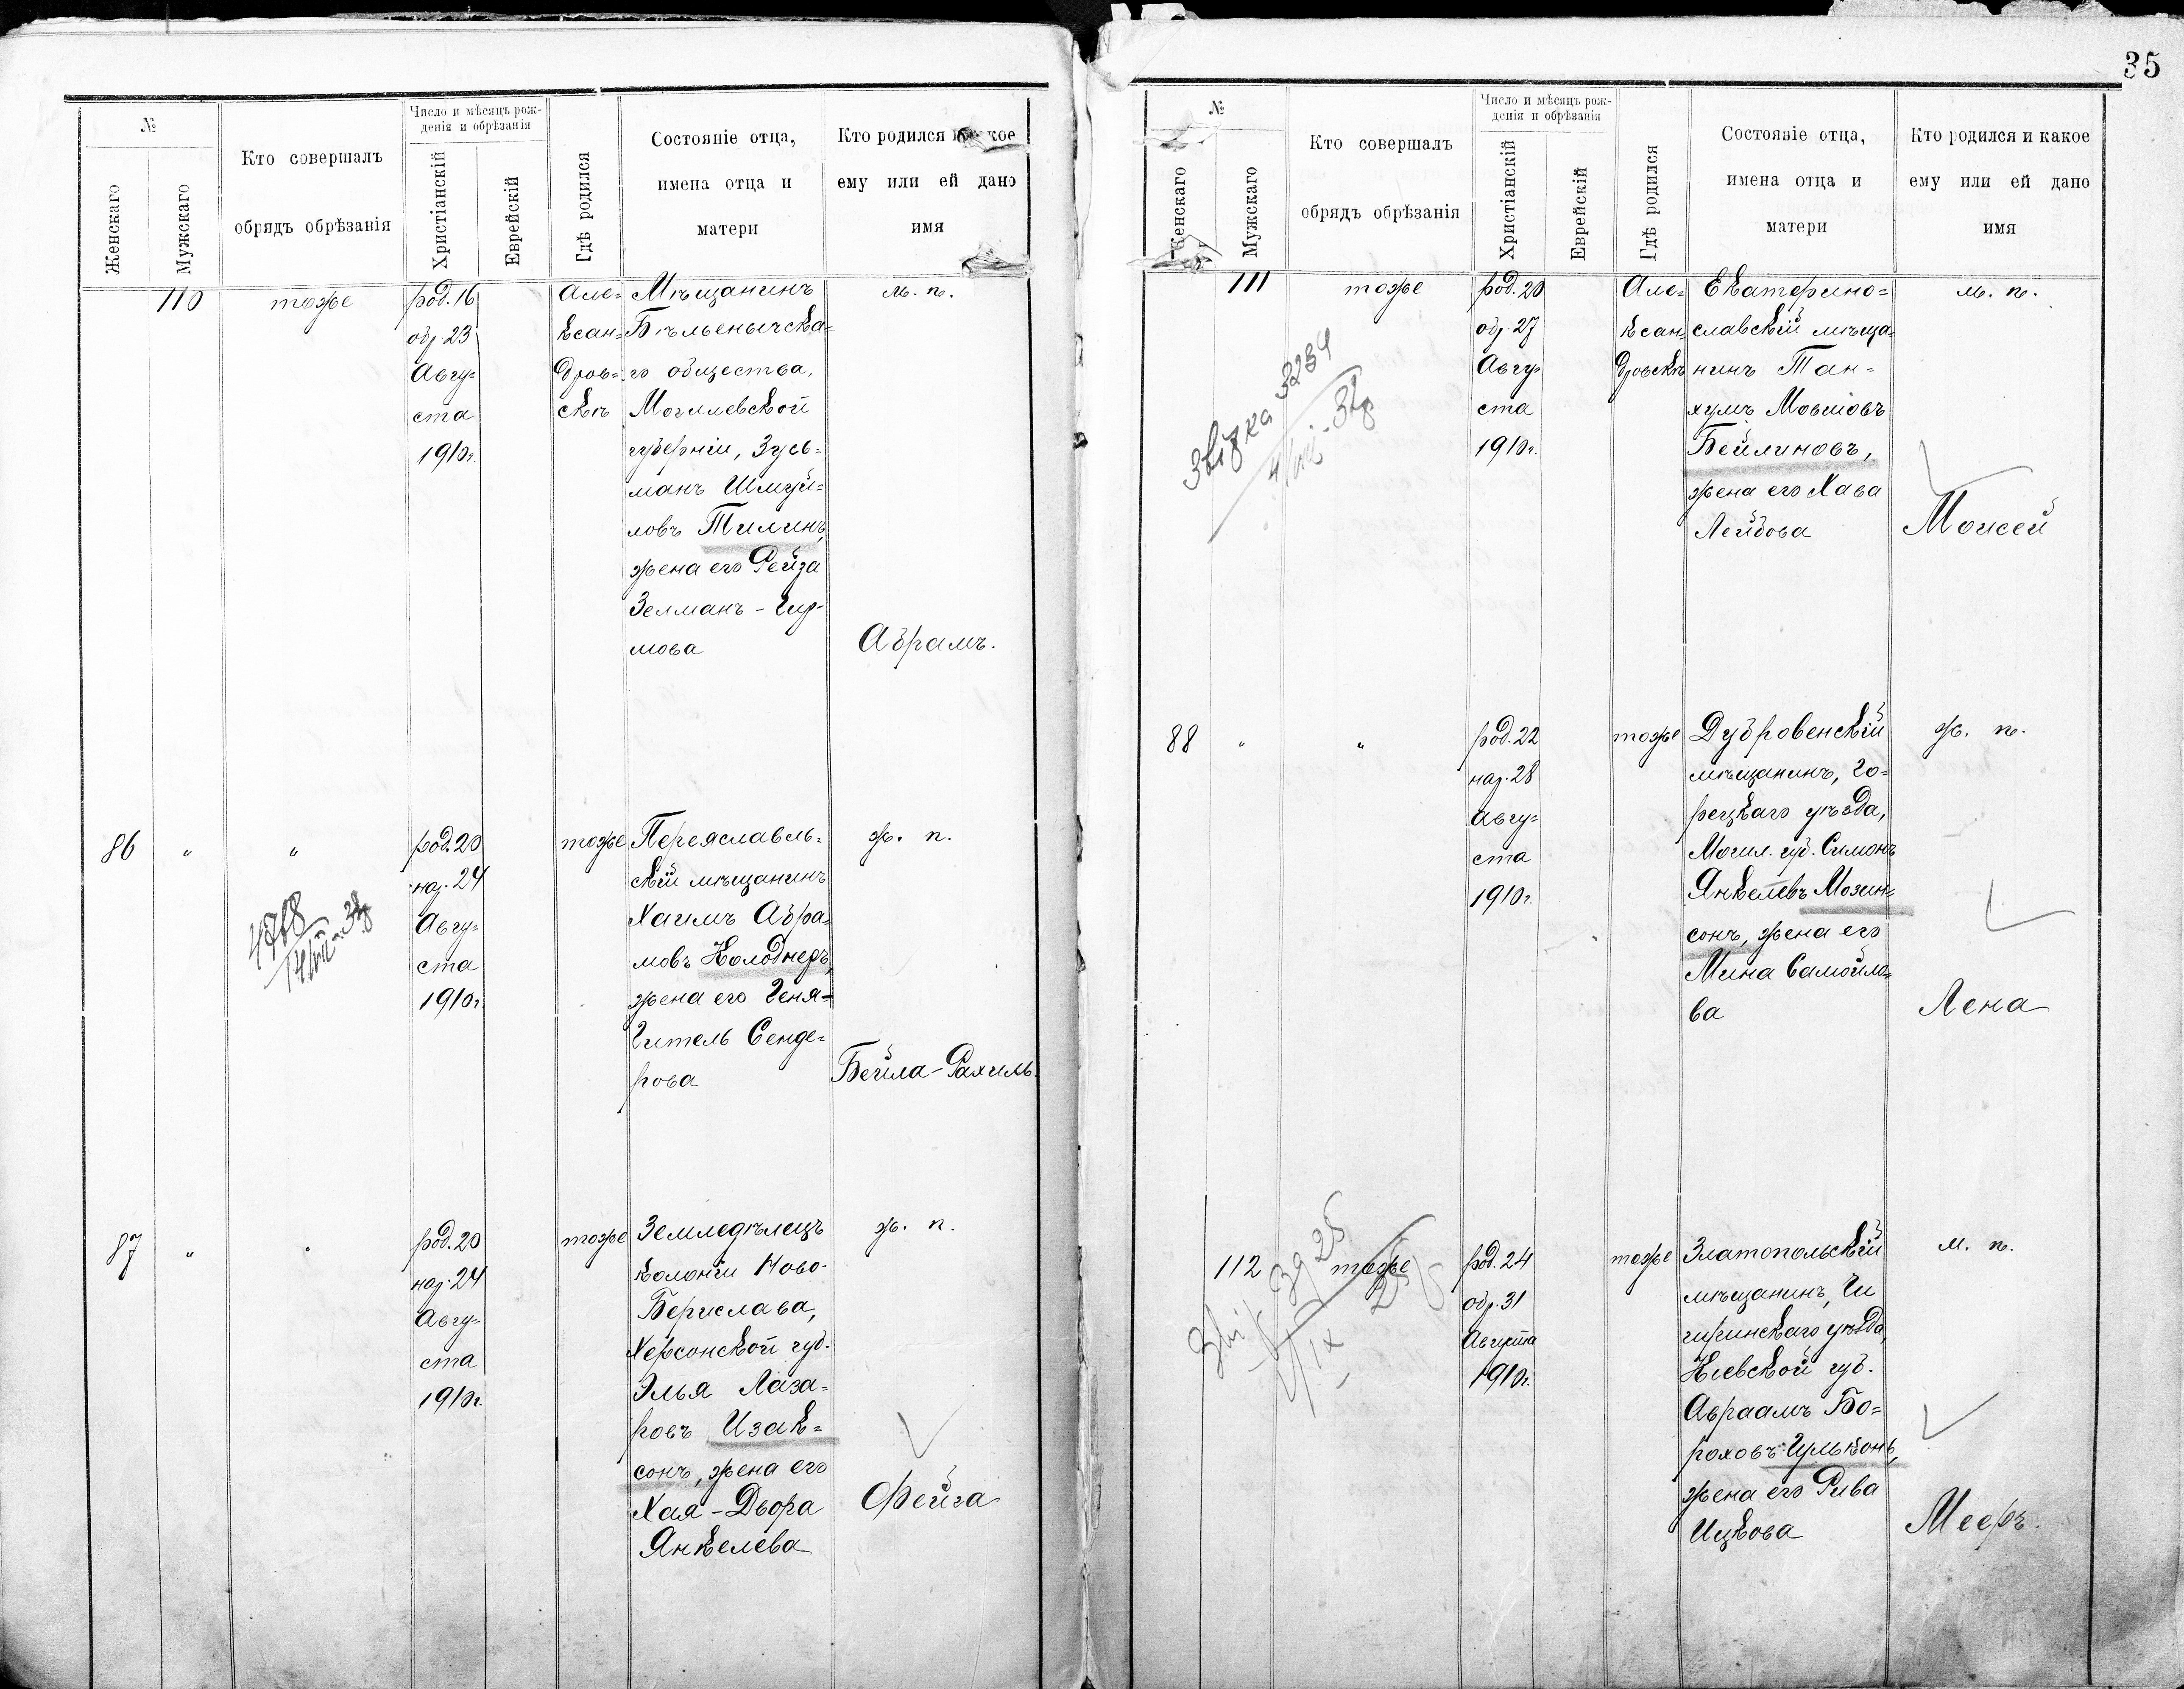 35
№
Женскаго
Мужскаго
Кто совершалъ
обрядъ обрѣзанія
Число и мѣсяцъ рож-
денія и обрѣзанія
Христіанскій
Еврейскій
Гдѣ родился
Состояніе отца,
имена отца и
матери
Кто родился
ему или ей дано
имя
110
тоже
род. 16
обр. 23
Авгу=
ста
1910г.
Але=
ксан=
дров=
скѣ
Мѣщанинъ
Бѣльеничска=
го общества,
Могилевской
губерніи, Зусь=
манъ Шмуй=
ловъ Тилинъ,
жена его Рейза
Зелманъ-Гир-
мова
м. п.
Абрамъ.
86
"
"
4768
род. 20
нар. 24
Авгу=
ста
1910г.
тоже
Переяславль=
скій мѣщанинъ
Хаимъ Абра=
мовъ Колоднеръ,
жена его Геня-
Гитель Сенде=
рова
ж. п.
Бейла-Рахиль.
87
"
"
род. 20
нар. 24
Авгу=
ста
1910г.
тоже
Земледѣлецъ
колоніи Ново-
Берислава,
Херсонской губ.
Элья Лаза=
ровъ Изак=
сонъ, жена его
Хая-Двора
Янкелева
ж. п.
Фейга
№
Женскаго
Мужскаго
Кто совершалъ
обрядъ обрѣзанія
Число и мѣсяцъ рож-
денія и обрѣзанія
Христіанскій
Еврейскій
Гдѣ родился
Состояніе отца,
имена отца и
матери
Кто родился и какое
ему или ей дано
имя
111
тоже
3234
род. 20
обр. 27
Авгу=
ста
1910г.
Але=
ксан=
дровскѣ
Екатерино=
славскій мѣща=
нинъ Тан=
хумъ Мовшовъ
Бейлиновъ,
жена его Хава
Лейбова
м. п.
Моисей
88
"
"
род. 22
нар. 28
Авгу=
ста
1910г.
тоже
Дубровенскій
мѣщанинъ, Го=
рецкаго уѣзда,
Могил. губ. Симонъ
Янкелевъ Мозин=
сонъ, жена его
Мина Самойло=
ва
ж. п.
Лена
112
тоже
род. 24
обр. 31
Августа
1910г.
тоже
Златопольскій
мѣщанинъ, Чи
гиринскаго уѣзда,
Кіевской губ.
Авраамъ Бо=
роховъ
жена его Рива
Ицкова
м. п.
Мееръ.